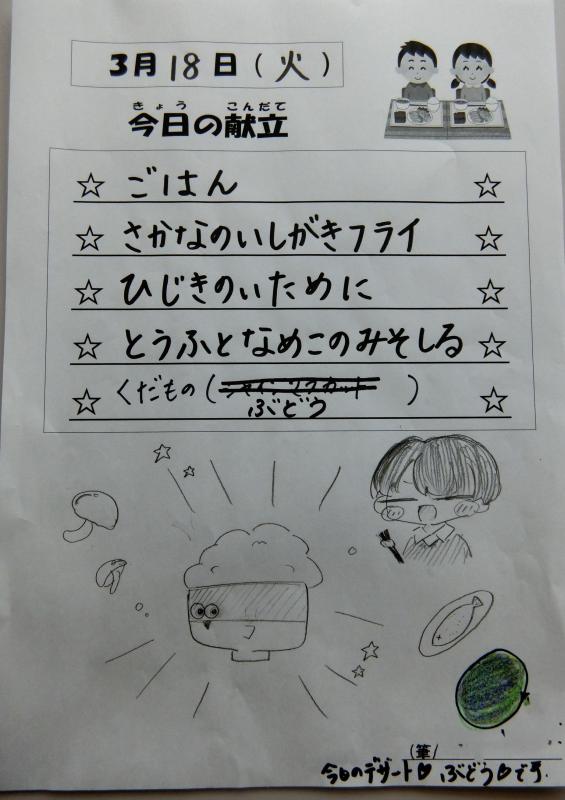 3月18日(火)
きょう こんだて
今日の献立
☆ ごはん ☆
☆ さかなのいしがきフライ ☆
☆ ひじきのいために ☆
☆ とうふとなめこのみそしる ☆
☆ くだもの(シャインマスカット) ☆
ぶどう
(筆/
今日のデザート♡ ぶどう♡です